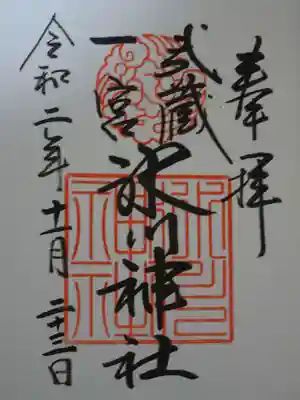 奉拝
武蔵
一宮
氷川神社
令和二年十一月二十三日
氷川
神社